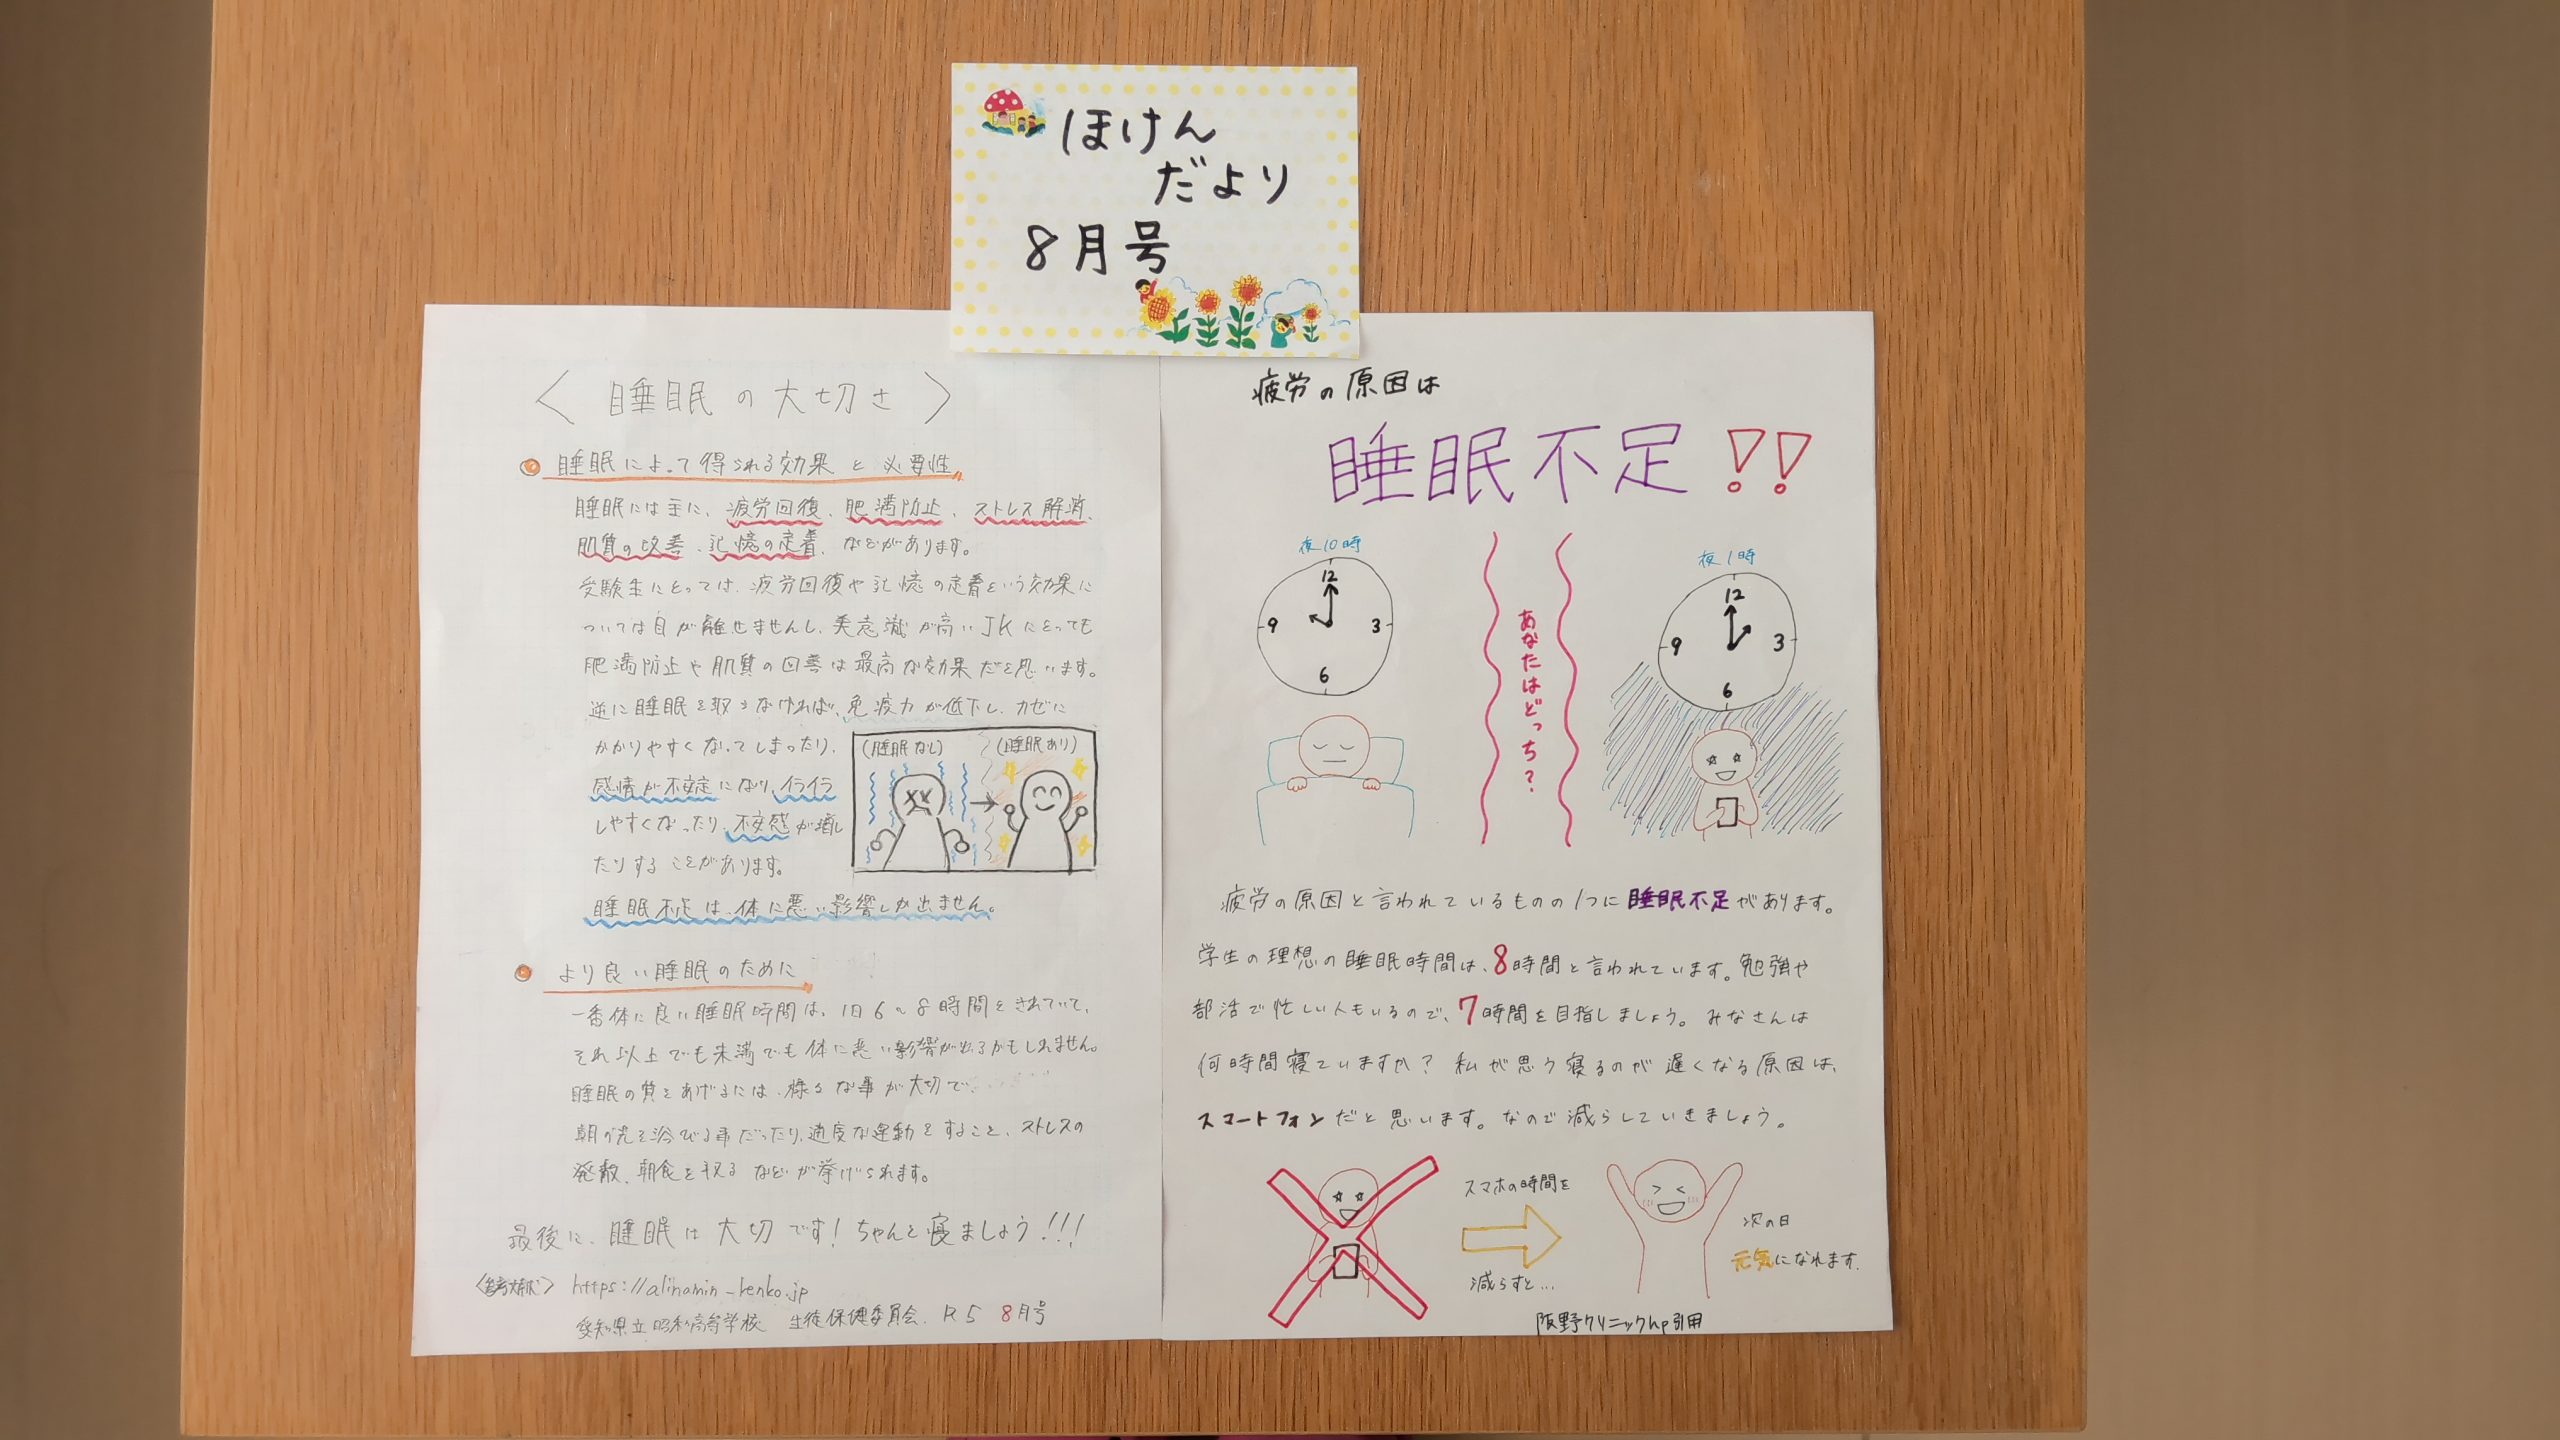 ほけん
だより
8月号
〈 睡眠の大切さ 〉
睡眠によって得られる効果と必要性
睡眠には主に、疲労回復、肥満防止、ストレス解消、
肌質の改善、記憶の定着、などがあります。
受験生にとっては、疲労回復や記憶の定着という効果に
ついては目が離せませんし、美意識が高いJKにとっても
肥満防止や肌質の回善は最高な効果だと思います。
逆に睡眠を取らなければ、免疫力が低下し、カゼに
かかりやすくなってしまったり、
感情が不安定になり、イライラ
しやすくなったり、不安感が増し
たりすることがあります。
睡眠不足は、体に悪い影響しか出ません。
(睡眠なし)
(睡眠あり)
より良い睡眠のために
一番体に良い睡眠時間は、1日6〜8時間とされていて、
それ以上でも未満でも体に悪い影響が出るかもしれません。
睡眠の質をあげるには、様々な事が大切で、
朝の光を浴びる事だったり、適度な運動をすること、ストレスの
発散、朝食を取るなどが挙げられます。
最後に、睡眠は大切です!ちゃんと寝ましょう!!!
〈参考文献〉 https://alinamin-kenko.jp
愛知県立昭和高等学校 生徒保健委員会 R5 8月号
疲労の原因は
睡眠不足!!
夜10時
12
3
6
9
あなたはどっち?
夜1時
12
3
6
9
疲労の原因と言われているものの1つに睡眠不足があります。
学生の理想の睡眠時間は、8時間と言われています。勉強や
部活で忙しい人もいるので、7時間を目指しましょう。みなさんは
何時間寝ていますか? 私が思う寝るのが遅くなる原因は、
スマートフォンだと思います。なので減らしていきましょう。
スマホの時間を
減らすと...
次の日
元気になれます.
阪野クリニックhp引用